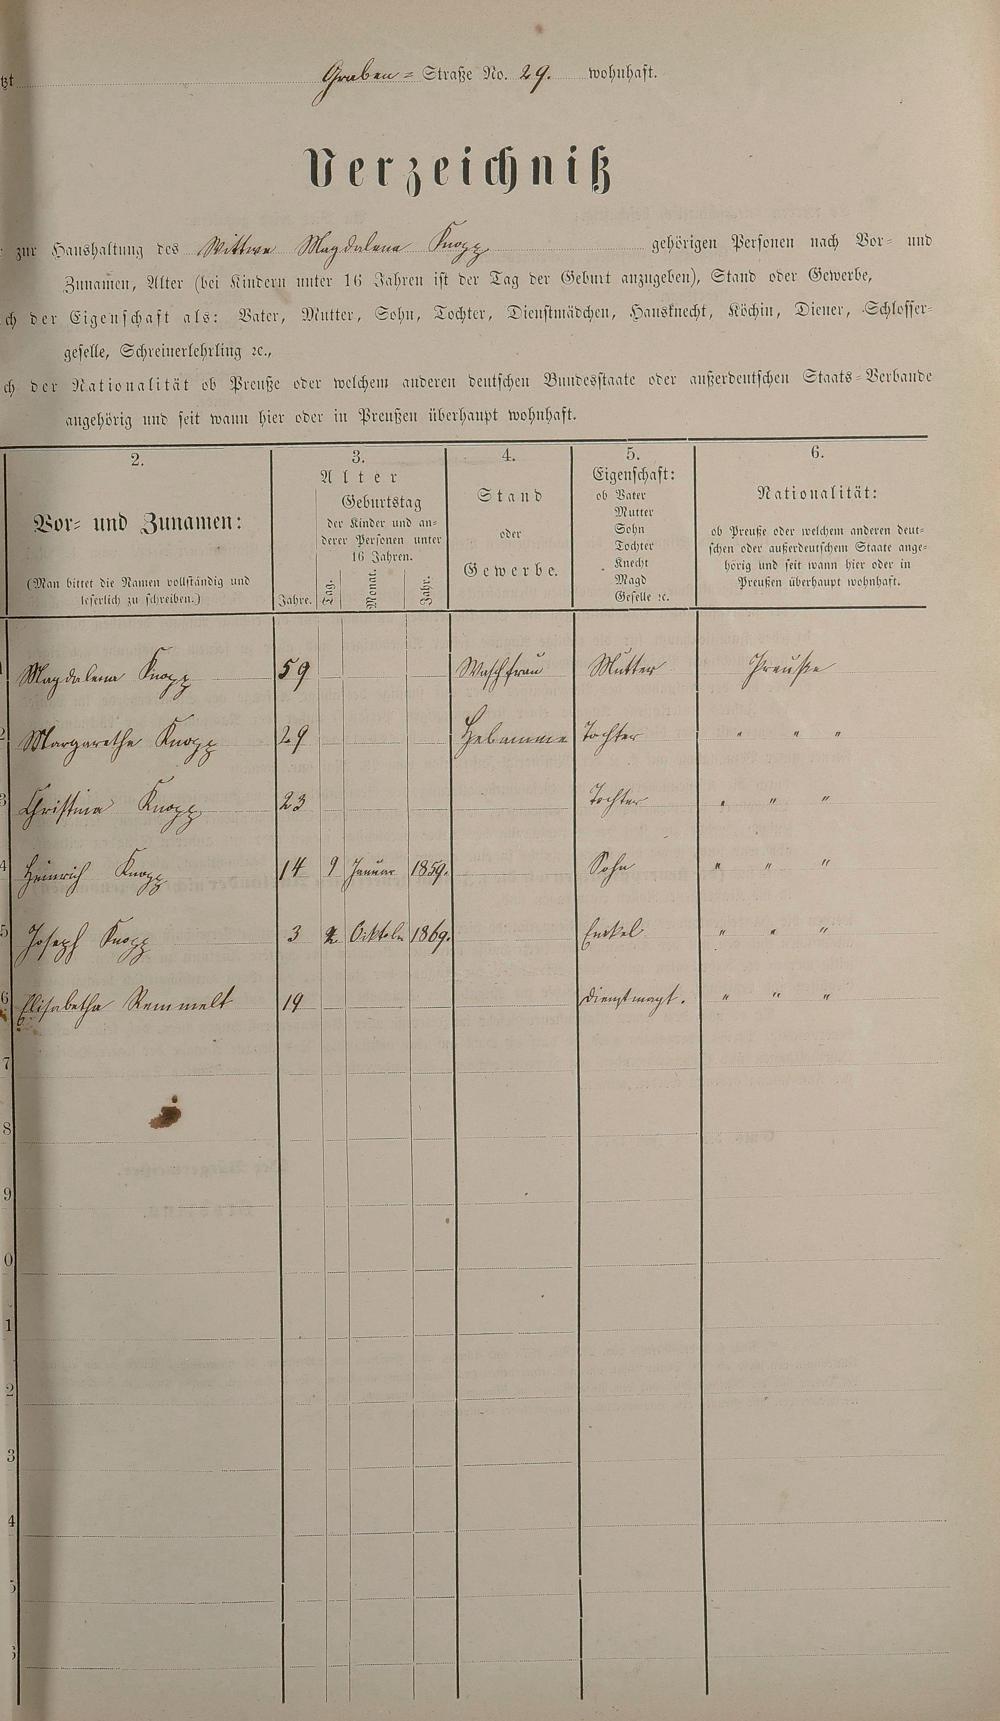 tzt Graben= Straße No. 29. wohnhaft.
Verzeichniß
zur Haushaltung des Wittwe Magdalena Knopp gehörigen Personen nach Vor- und
Zunamen, Alter (bei Kindern unter 16 Jahren ist der Tag der Geburt anzugeben), Stand oder Gewerbe,
ch der Eigenschaft als: Vater, Mutter, Sohn, Tochter, Dienstmädchen, Hausknecht, Köchin, Diener, Schlosser-
geselle, Schreinerlehrling ꝛc.,
ch der Nationalität ob Preuße oder welchem anderen deutschen Bundesstaate oder außerdeutschen Staats-Verbande
angehörig und seit wann hier oder in Preußen überhaupt wohnhaft.
2. 3. 4. 5. 6.
Vor- und Zunamen:
(Man bittet die Namen vollständig und
leserlich zu schreiben.)
Alter
Jahre.
Geburtstag
der Kinder und an-
derer Personen unter
16 Jahren.
Tag. Monat. Jahr.
Stand
oder
Gewerbe.
Eigenschaft:
ob Vater
Mutter
Sohn
Tochter
Knecht
Magd
Geselle ꝛc.
Nationalität:
ob Preuße oder welchem anderen deut-
schen oder außerdeutschem Staate ange-
hörig und seit wann hier oder in
Preußen überhaupt wohnhaft.
Magdalena Knopp 59 Waschfrau Mutter Preuße
2 Margarethe Knopp 29 Hebamme Tochter " " "
3 Christina Knopp 23 Tochter " " "
4 Heinrich Knopp 14 9 Januar 1859. Sohn " " "
5 Joseph Knopp 3 2. 1869. Enkel " " "
6 Elisabetha Remmelt 19 Dienstmagt. " " "
7
8
9
0
1
2
3
4
5
6